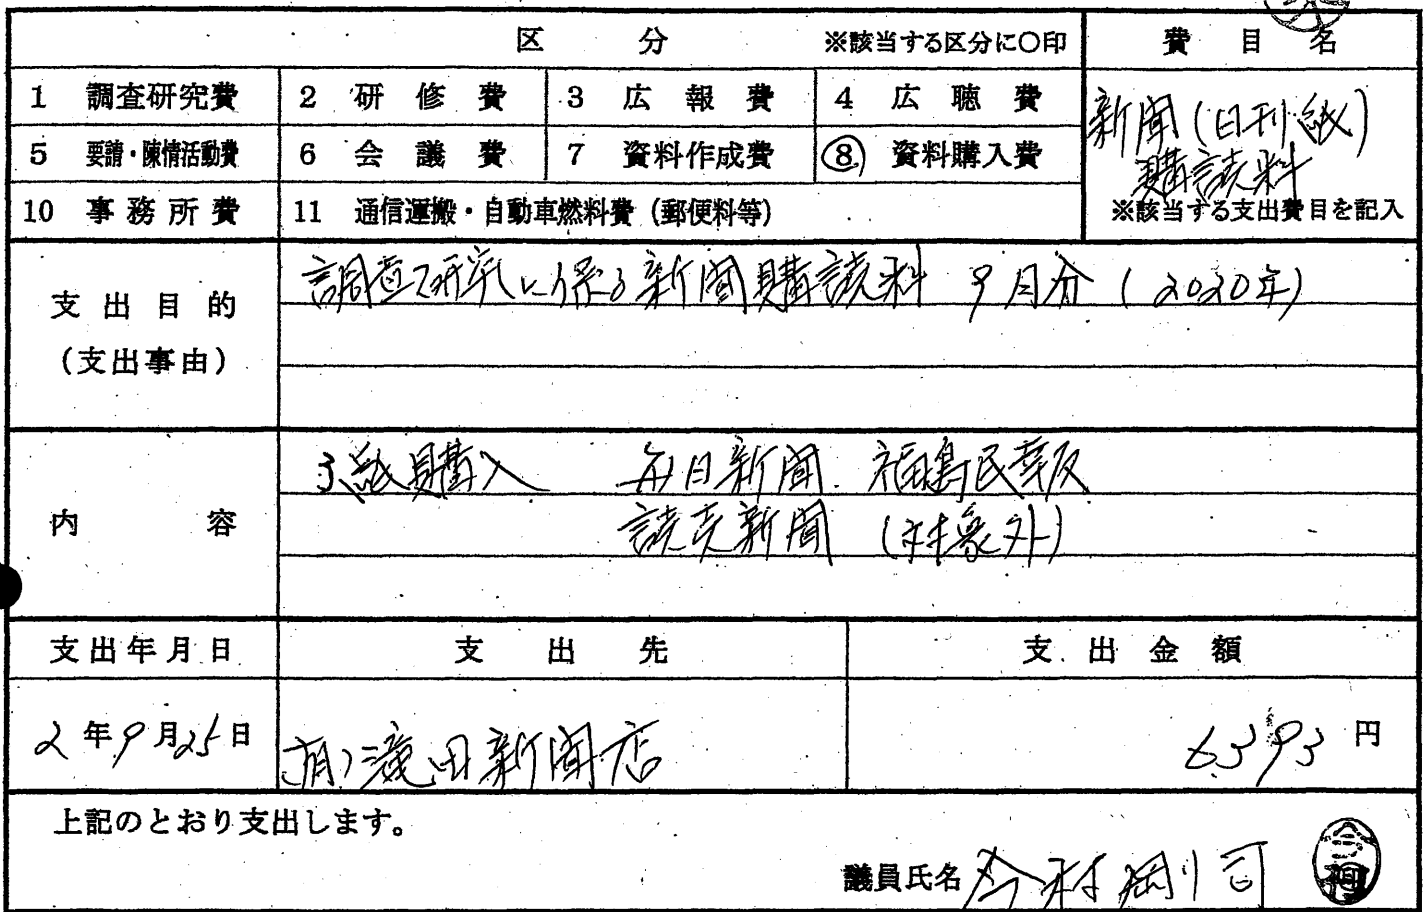 区 分 ※該当する区分に〇印 費 目 名
1 調査研究費 2 研修費 3 広報費 4 広聴費
新聞(日刊紙)
5 要請・陳情活動費 6 会議費 7 資料作成費 ⑧ 資料購入費
購読料
10 事務所費 11 通信運搬・自動車燃料費(郵便料等) ※該当する支出費目を記入
調査研究に係る新聞購読料 9月分(2020年)
支出目的
(支出事由)
3紙購入 毎日新聞. 福島民報
読売新聞 (対象外)
内 容
支出年月日 支 出 先 支 出 金 額
2年9月25日 (有)滝田新聞店 6,393円
上記のとおり支出します。
議員氏名 今村剛司 今村